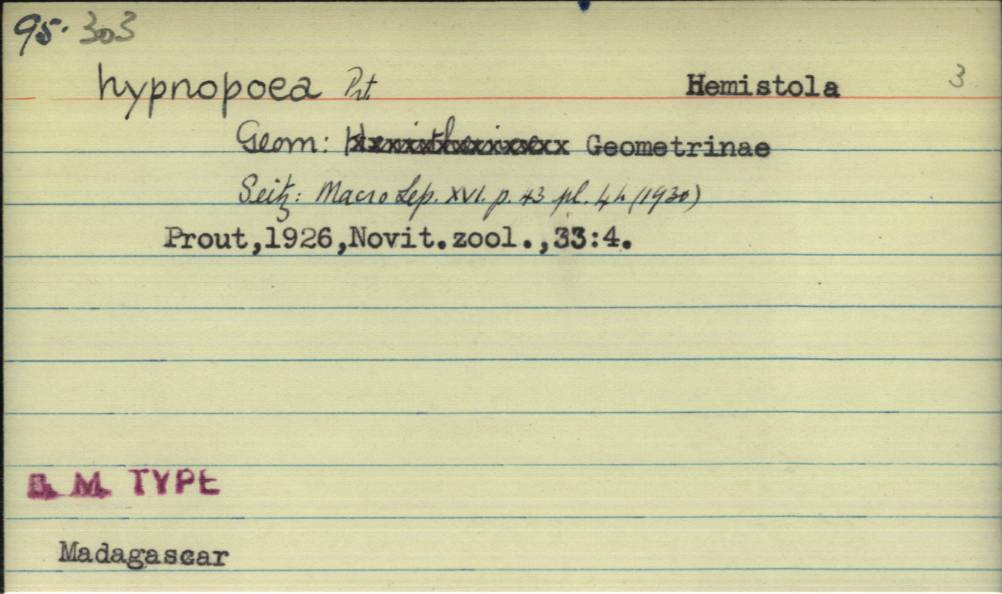 95. 303
hypnopoea Prt. Hemistola 3
Geom: Geometrinae
Seitz: Macro Lep. XVI. p. 43 pl. 4h (1930)
Prout,1926,Novit.zool.,33:4.
B. M. TYPE
Madagascar